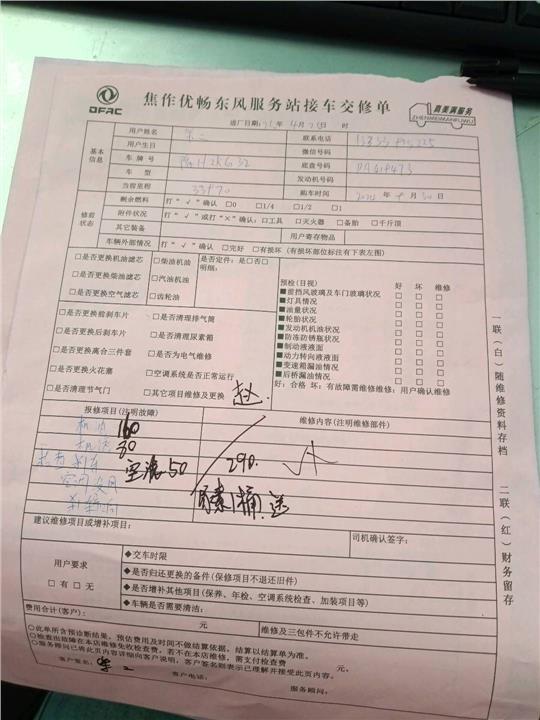 DFAC
焦作优畅东风服务站接车交修单
真美满服务
ZHENMEIMANFUWU
进厂日期: 年 4月 日 时
基本信息
用户姓名 联系电话
用户生日 微信号码
车牌号 底盘号码
车型 发动机号码
当前里程 33970 购车时间 年 月 30日
修前状态
剩余燃料 打“√”确认 □0 □1/4 □1/2 □1
附件状况 打“√”或打“×”确认:□工具 □灭火器 □备胎 □千斤顶
其它装备 用户寄存物品
车辆外部情况 打“√”确认 □完好 □有损坏(有损坏部位标注有下表左图)
□是否更换机油滤芯 □柴油机油 是否定件:是□否□
□是否更换柴油滤芯 □汽油机油 明细:
□是否更换空气滤芯 □齿轮油
□是否更换前刹车片 □是否清理排气筒
□是否更换后刹车片 □是否清理尿素箱
□是否更换离合三件套 □是否为电气维修
□是否更换火花塞 □空调系统是否正常运行
□是否清理节气门 □其它项目维修及更换
预检(目视) 好 坏 维修
■前挡风玻璃及车门玻璃状况 □ □ □
■灯具情况 □ □ □
■油量状况 □ □ □
■轮胎状况 □ □ □
■发动机机油状况 □ □ □
■防冻防锈瓶状况 □ □ □
■制动液液面 □ □ □
■动力转向液液面 □ □ □
■变速箱漏油情况 □ □ □
■后桥漏油情况 □ □ □
好:合格 坏:有故障需维修维修:用户确认维修
报修项目(注明故障) 维修内容(注明维修部件)
机油 160
机滤 30
空滤 50 290.
尿素1桶.送
建议维修项目或增补项目: 司机确认签字:
用户要求
□有 □无
◆交车时限
◆是否归还更换的备件(保修项目不退还旧件)
◆是否增补其他项目(保养、年检、空调系统检查、加装项目等)
◆车辆是否需要清洁:
费用合计(客户): 元 维修及三包件不允许带走
○此单所含预诊断结果,预估费用及时间不做结算依据,结算以结算单为准。
○检查出故障在本店维修免收检查费,若不在本店维修,需支付检查费 元。
○服务顾问已将此页内容详细向客户说明,客户签名则表示已理解并接受此页内容。
客户签名: 客户电话: 服务顾问:
一联(白)随维修资料存档
二联(红)财务留存